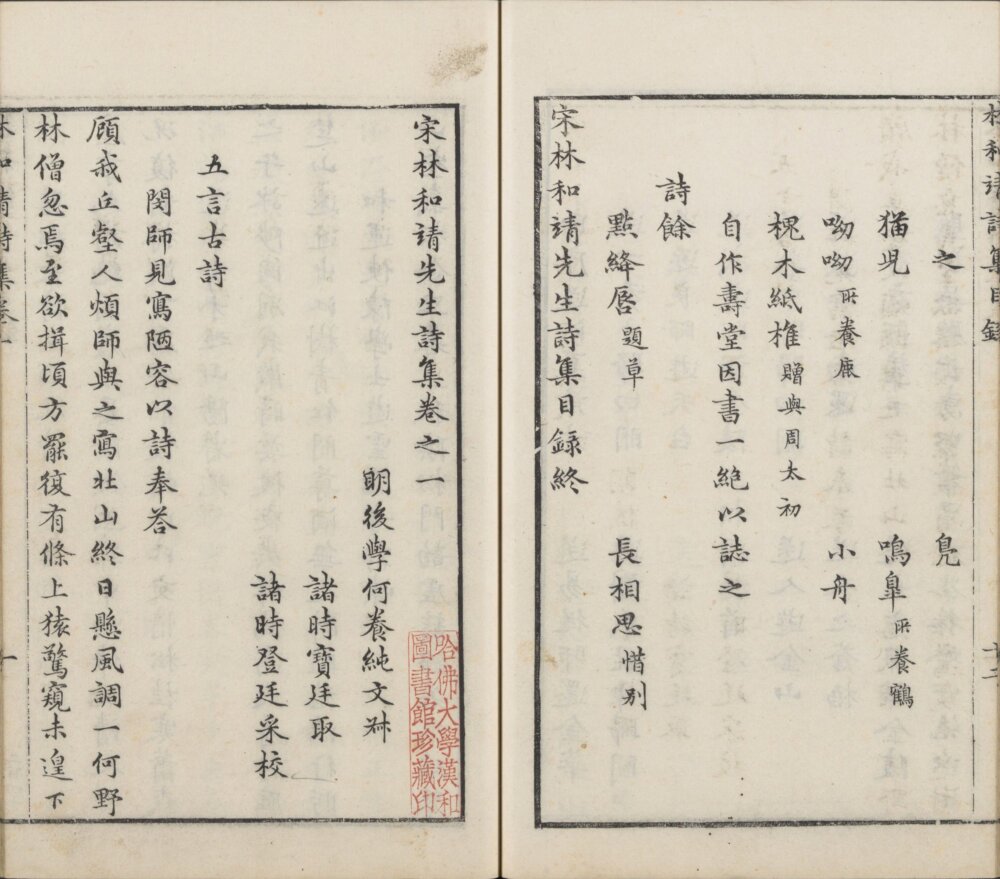 林和靖詩集目錄
十二
之 鳬
猫児 鳴臯所養鶴
呦呦所養鹿 小舟
槐木紙椎贈與周太初
自作壽堂因書一絶以誌之
詩餘
點絳唇題草 長相思惜别
宋林和靖先生詩集目録終
宋林和靖先生詩集卷之一
明後學何養純文
諸時寶廷取
諸時登廷采校
五言古詩
閔師見寫陋容以詩奉荅
顧我丘壑人煩師與之寫北山終日懸風調一何野
林僧忽焉至欲揖頃方罷復有條上猿驚窺未遑下
林和靖詩集卷一
一
哈佛大學漢和
圖書館珍藏印